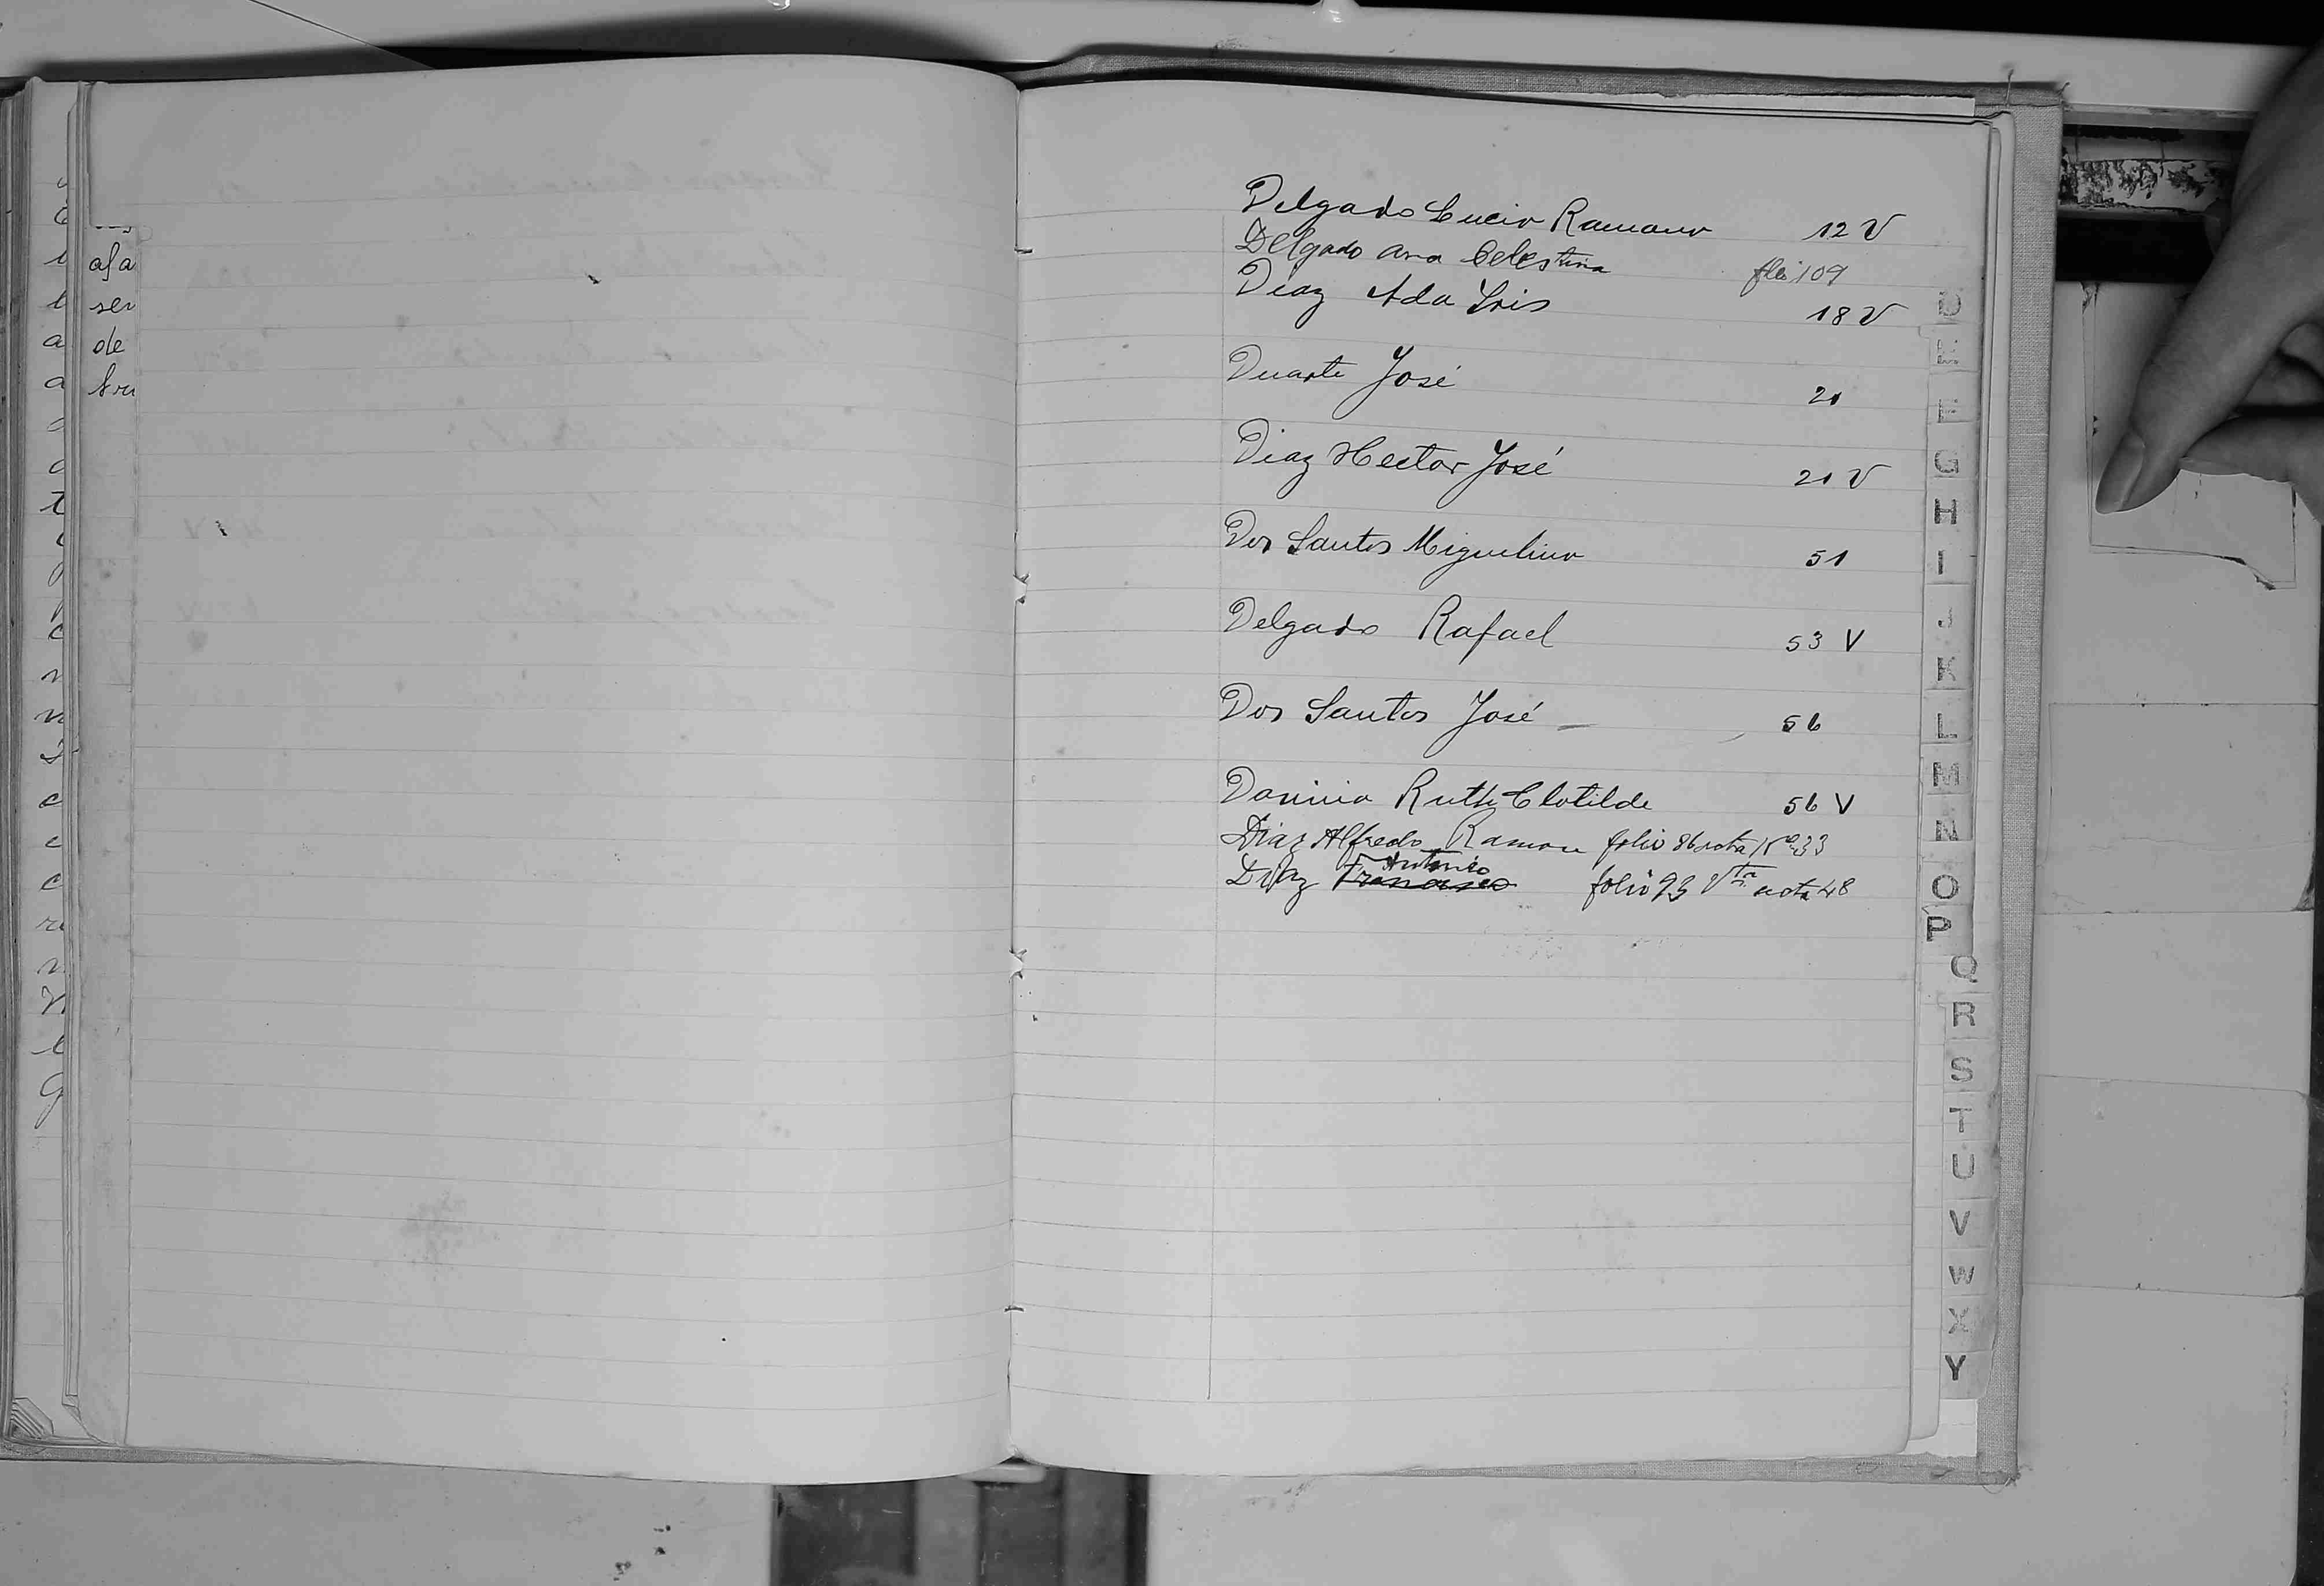 afa
ser
de
Delgado Lucio Ramano 12 V
Delgado Ana Celestina flio 109
Diaz Ada Iris 18 V
Duarte José 21
Diaz Hector José 21 V
Dos Santos Miguelino 51
Delgado Rafael 53 V
Dos Santos José 56
Ruth Clotilde 56 V
Diaz Alfredo Ramon folio 86 acta Nº 33
Antonio
Diaz Francisco folio 93 Vta acta 48
D
E
F
G
H
I
J
K
L
M
N
O
P
Q
R
S
T
U
V
W
X
Y